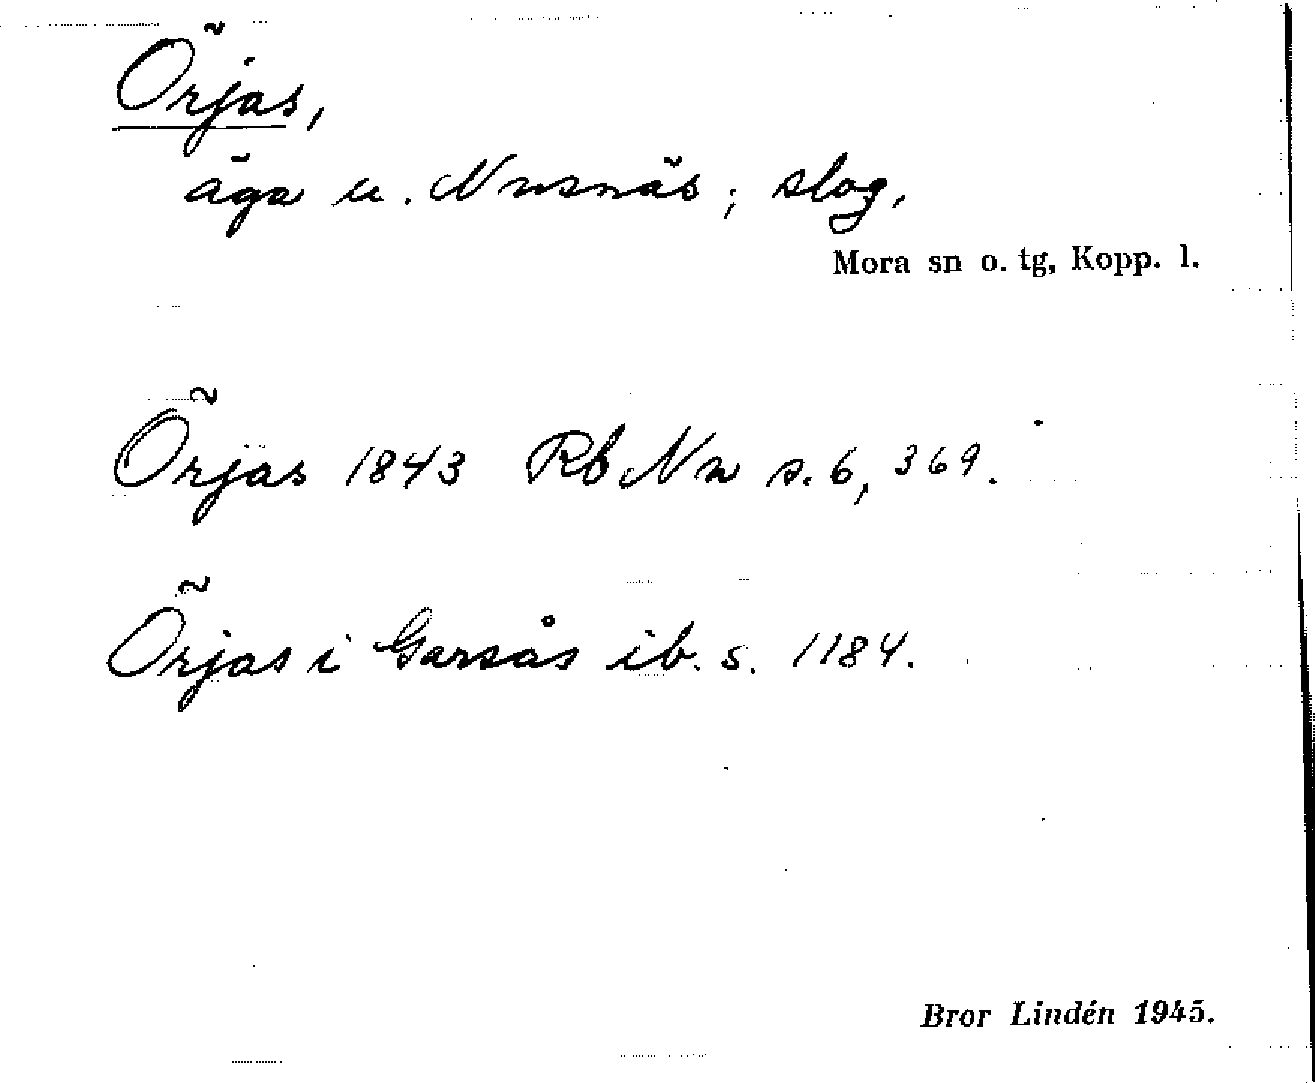 Örjas,
äga u. Nusnäs; slog.
Mora sn o. tg, Kopp. l.
Örjas 1843 Rb Nn s. 6, 369.
Örjas i Garsås ib. s. 1184.
Bror Lindén 1945.